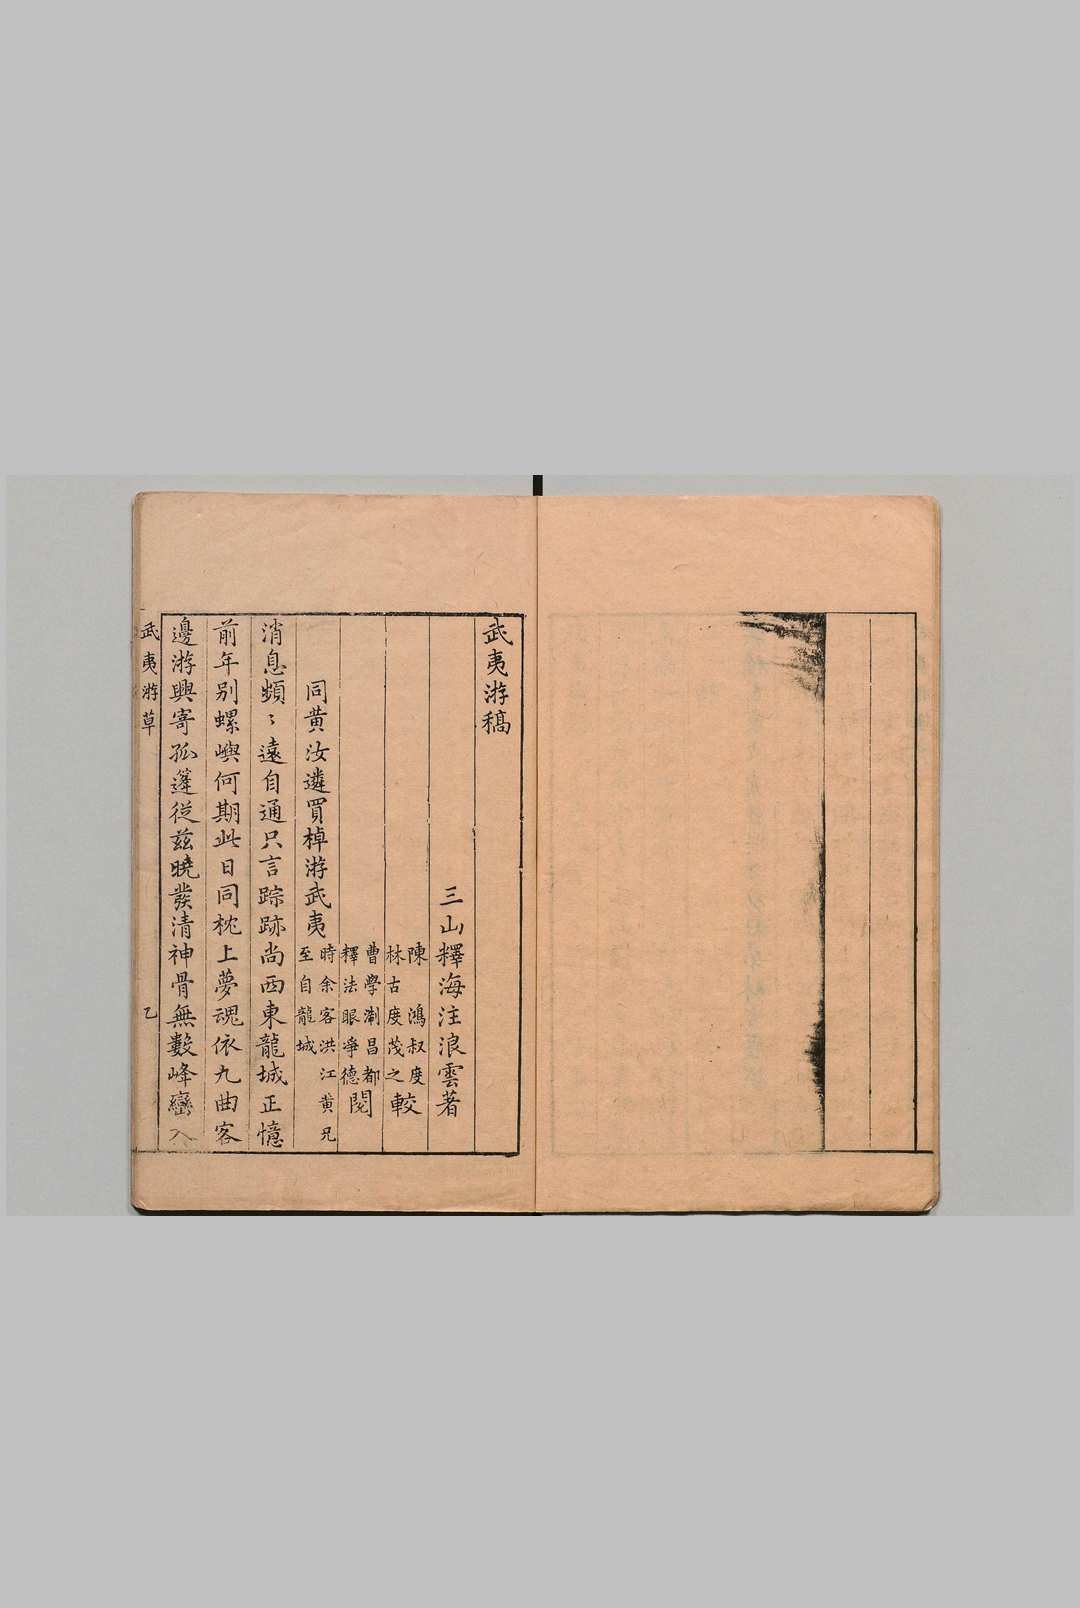 武夷游稿
三山釋海注浪雲著
陳　鴻叔度
林古度茂之
較
曹學㴊昌都
釋法眼淨德
閱
同黃汝遴買棹游武夷
時余客洪江黃兄
至自龍城
消息頻〻遠自通只言踪跡尚西東龍城正憶
前年別螺嶼何期此日同枕上夢魂依九曲客
邊游興寄孤篷從茲曉發清神骨無數峰巒入
武夷游草
乙